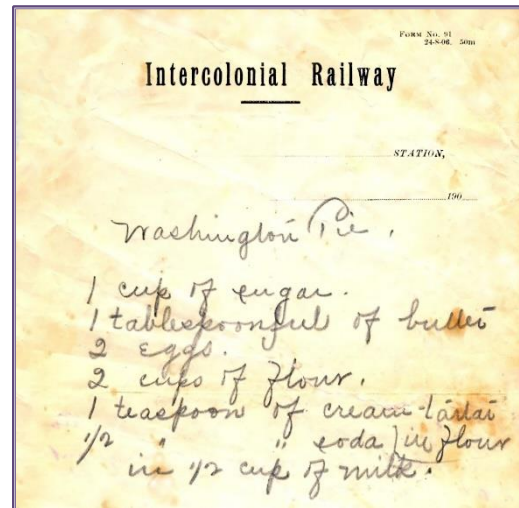 FORM No. 91
24-8-06. 50m
Intercolonial Railway
STATION,
190
Washington Pie.
1 cup of sugar.
1 tablespoonful of butter
2 Eggs.
2 cups of flour.
1 teaspoon of cream-tartar
1/2 " " soda } in flour
in 1/2 cup of milk.